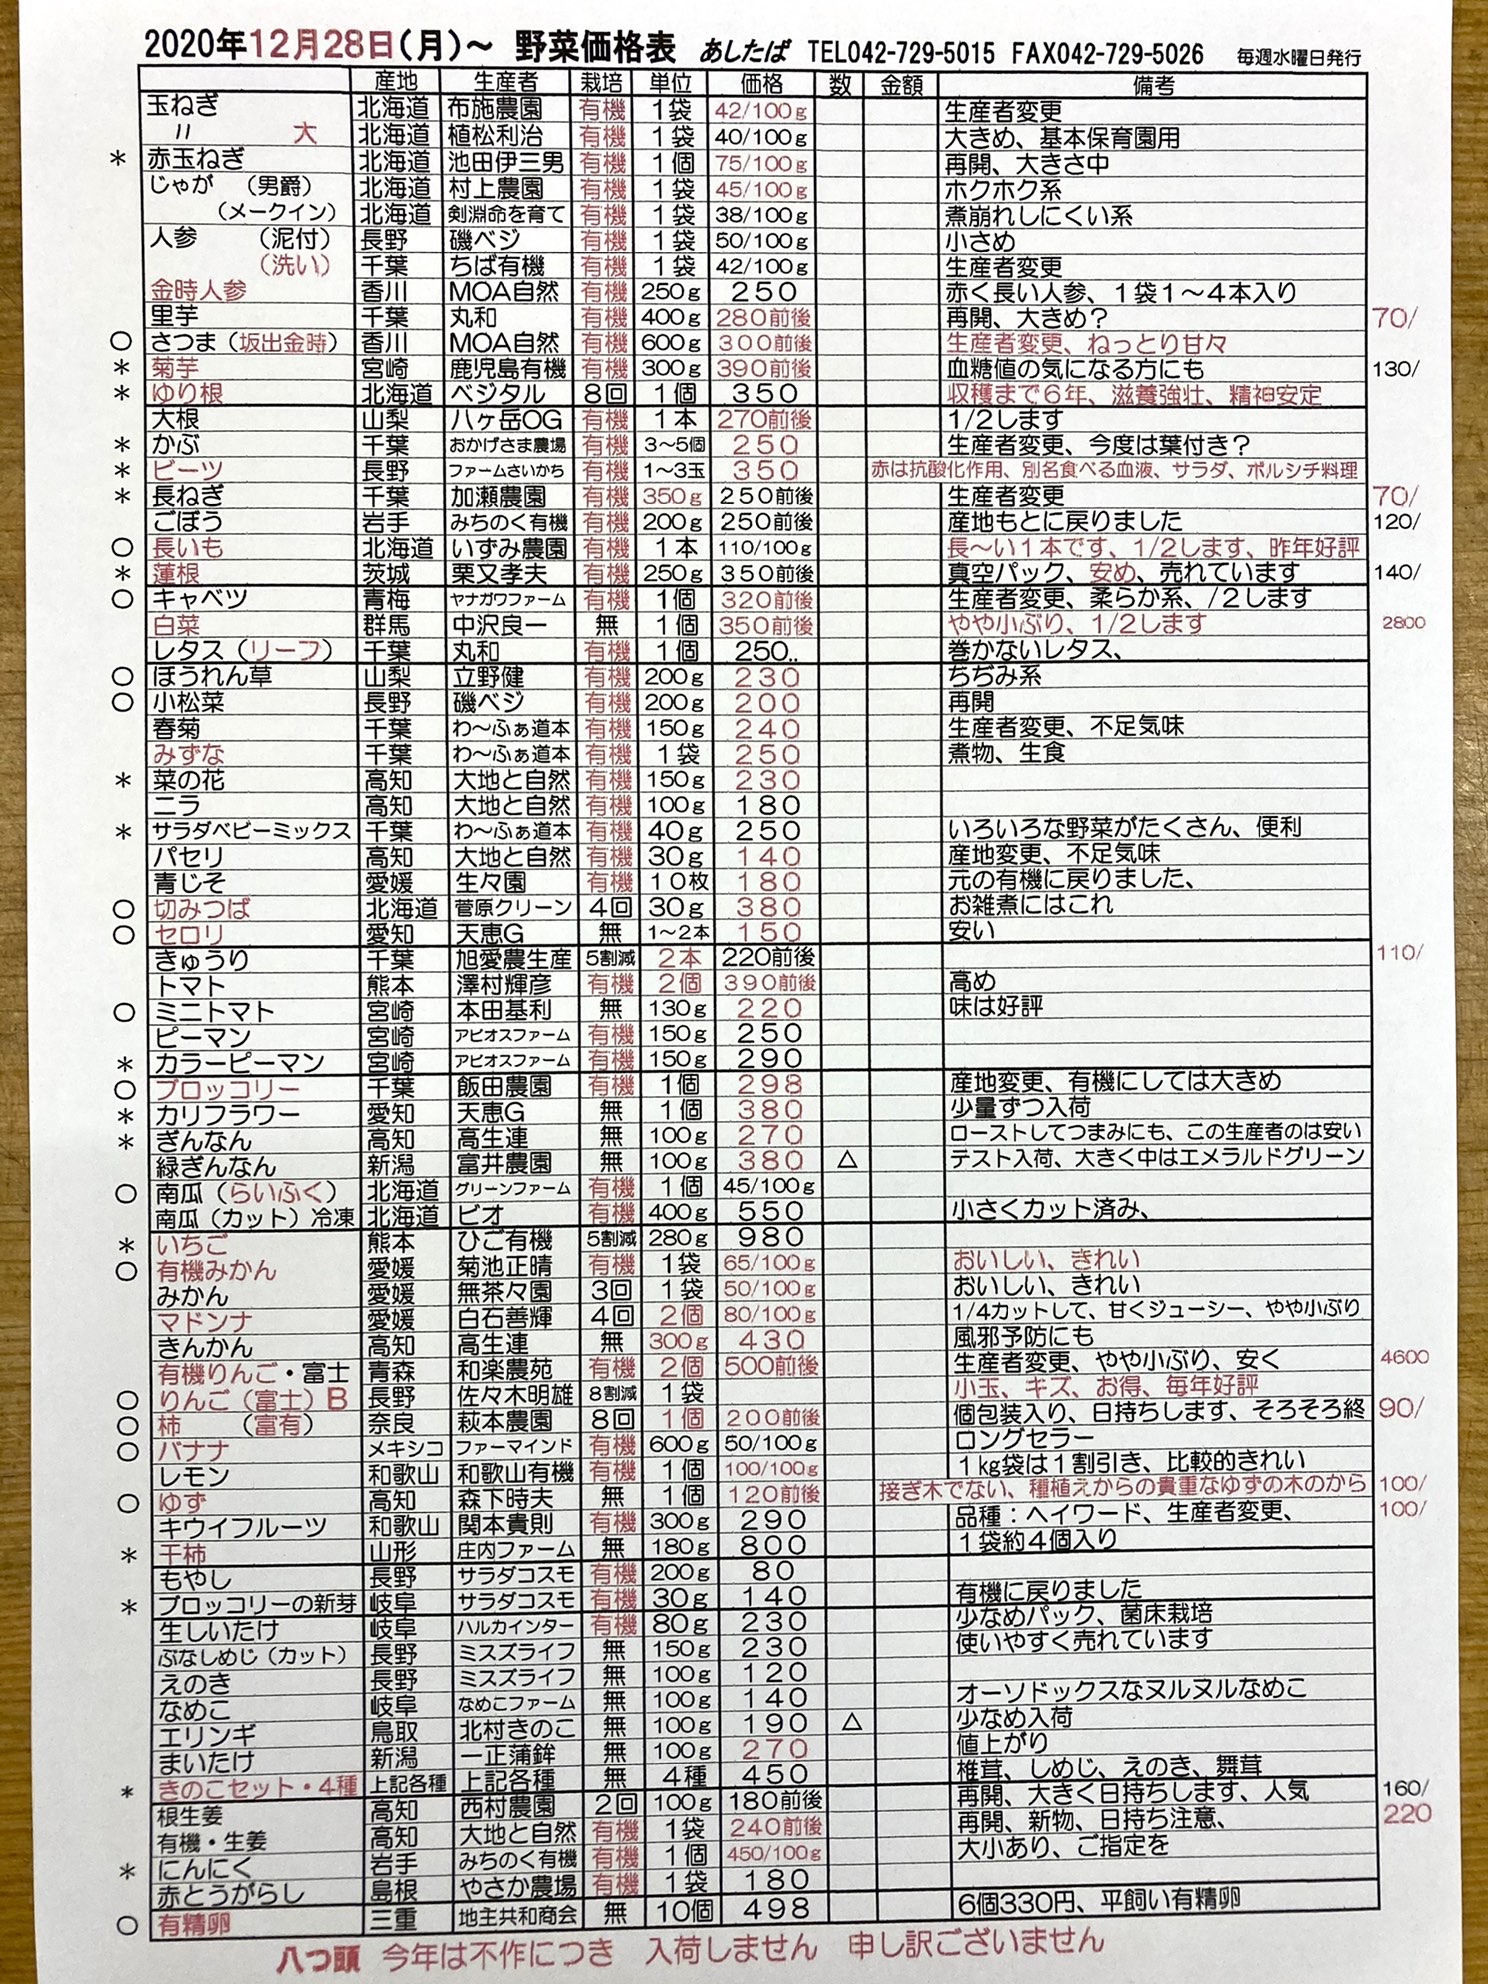 2020年12月28日(月)～ 野菜価格表 あしたば TEL042-729-5015 FAX042-729-5026 毎週水曜日発行
産地 生産者 栽培 単位 価格 数 金額 備考
玉ねぎ 北海道 布施農園 有機 1袋 42/100g 生産者変更
〃 大 北海道 植松利治 有機 1袋 40/100g 大きめ、基本保育園用
* 赤玉ねぎ 北海道 池田伊三男 有機 1個 75/100g 再開、大きさ中
じゃが (男爵) 北海道 村上農園 有機 1袋 45/100g ホクホク系
(メークイン) 北海道 剣淵命を育て 有機 1袋 38/100g 煮崩れしにくい系
人参 (泥付) 長野 磯ベジ 有機 1袋 50/100g 小さめ
(洗い) 千葉 ちば有機 有機 1袋 42/100g 生産者変更
金時人参 香川 MOA自然 有機 250g 250 赤く長い人参、1袋1～4本入り
里芋 千葉 丸和 有機 400g 280前後 再開、大きめ? 70/
○ さつま(坂出金時) 香川 MOA自然 有機 600g 300前後 生産者変更、ねっとり甘々
* 菊芋 宮崎 鹿児島有機 有機 300g 390前後 血糖値の気になる方にも 130/
* ゆり根 北海道 ベジタル 8回 1個 350 収穫まで6年、滋養強壮、精神安定
大根 山梨 八ヶ岳OG 有機 1本 270前後 1/2します
* かぶ 千葉 おかげさま農場 有機 3～5個 250 生産者変更、今度は葉付き?
* ビーツ 長野 ファームさいかち 有機 1～3玉 350 赤は抗酸化作用、別名食べる血液、サラダ、ボルシチ料理
* 長ねぎ 千葉 加瀬農園 有機 350g 250前後 生産者変更 70/
ごぼう 岩手 みちのく有機 有機 200g 250前後 産地もとに戻りました 120/
○ 長いも 北海道 いずみ農園 有機 1本 110/100g 長～い1本です、1/2します、昨年好評
* 蓮根 茨城 栗又孝夫 有機 250g 350前後 真空パック、安め、売れています 140/
○ キャベツ 青梅 ヤナガワファーム 有機 1個 320前後 生産者変更、柔らか系、/2します
白菜 群馬 中沢良一 無 1個 350前後 やや小ぶり、1/2します 2800
レタス(リーフ) 千葉 丸和 有機 1個 250.. 巻かないレタス、
○ ほうれん草 山梨 立野健 有機 200g 230 ちぢみ系
○ 小松菜 長野 磯ベジ 有機 200g 200 再開
春菊 千葉 わ～ふぁ道本 有機 150g 240 生産者変更、不足気味
みずな 千葉 わ～ふぁ道本 有機 1袋 250 煮物、生食
* 菜の花 高知 大地と自然 有機 150g 230
ニラ 高知 大地と自然 有機 100g 180
* サラダベビーミックス 千葉 わ～ふぁ道本 有機 40g 250 いろいろな野菜がたくさん、便利
パセリ 高知 大地と自然 有機 30g 140 産地変更、不足気味
青じそ 愛媛 生々園 有機 10枚 180 元の有機に戻りました、
○ 切みつば 北海道 菅原クリーン 4回 30g 380 お雑煮にはこれ
○ セロリ 愛知 天恵G 無 1～2本 150 安い
きゅうり 千葉 旭愛農生産 5割減 2本 220前後 110/
トマト 熊本 澤村輝彦 有機 2個 390前後 高め
○ ミニトマト 宮崎 本田基利 無 130g 220 味は好評
ピーマン 宮崎 アビオスファーム 有機 150g 250
* カラーピーマン 宮崎 アビオスファーム 有機 150g 290
○ ブロッコリー 千葉 飯田農園 有機 1個 298 産地変更、有機にしては大きめ
* カリフラワー 愛知 天恵G 無 1個 380 少量ずつ入荷
* ぎんなん 高知 高生連 無 100g 270 ローストしてつまみにも、この生産者のは安い
緑ぎんなん 新潟 富井農園 無 100g 380 △ テスト入荷、大きく中はエメラルドグリーン
○ 南瓜(らいふく) 北海道 グリーンファーム 有機 1個 45/100g
南瓜(カット)冷凍 北海道 ビオ 有機 400g 550 小さくカット済み、
* いちご 熊本 ひご有機 5割減 280g 980
○ 有機みかん 愛媛 菊池正晴 有機 1袋 65/100g おいしい、きれい
みかん 愛媛 無茶々園 3回 1袋 50/100g おいしい、きれい
マドンナ 愛媛 白石善輝 4回 2個 80/100g 1/4カットして、甘くジューシー、やや小ぶり
きんかん 高知 高生連 無 300g 430 風邪予防にも
有機りんご・富士 青森 和楽農苑 有機 2個 500前後 生産者変更、やや小ぶり、安く 4600
○ りんご(富士)B 長野 佐々木明雄 8割減 1袋 小玉、キズ、お得、毎年好評
○ 柿 (富有) 奈良 萩本農園 8回 1個 200前後 個包装入り、日持ちします、そろそろ終 90/
○ バナナ メキシコ ファーマインド 有機 600g 50/100g ロングセラー
レモン 和歌山 和歌山有機 有機 1個 100/100g 1kg袋は1割引き、比較的きれい
○ ゆず 高知 森下時夫 無 1個 120前後 接ぎ木でない、種植えからの貴重なゆずの木のから 100/
キウイフルーツ 和歌山 関本貴則 有機 300g 290 品種:ヘイワード、生産者変更、 100/
* 干柿 山形 庄内ファーム 無 180g 800 1袋約4個入り
もやし 長野 サラダコスモ 有機 200g 80
* ブロッコリーの新芽 岐阜 サラダコスモ 有機 30g 140 有機に戻りました
生しいたけ 岐阜 ハルカインター 有機 80g 230 少なめパック、菌床栽培
ぶなしめじ(カット) 長野 ミスズライフ 無 150g 230 使いやすく売れています
えのき 長野 ミスズライフ 無 100g 120
なめこ 岐阜 なめこファーム 無 100g 140 オーソドックスなヌルヌルなめこ
エリンギ 鳥取 北村きのこ 無 100g 190 △ 少なめ入荷
まいたけ 新潟 一正蒲鉾 無 100g 270 値上がり
* きのこセット・4種 上記各種 上記各種 無 4種 450 椎茸、しめじ、えのき、舞茸
根生姜 高知 西村農園 2回 100g 180前後 再開、大きく日持ちします、人気 160/
有機・生姜 高知 大地と自然 有機 1袋 240前後 再開、新物、日持ち注意、 220
* にんにく 岩手 みちのく有機 有機 1個 450/100g 大小あり、ご指定を
赤とうがらし 島根 やさか農場 有機 1袋 180
○ 有精卵 三重 地主共和商会 無 10個 498 6個330円、平飼い有精卵
八つ頭 今年は不作につき 入荷しません 申し訳ございません